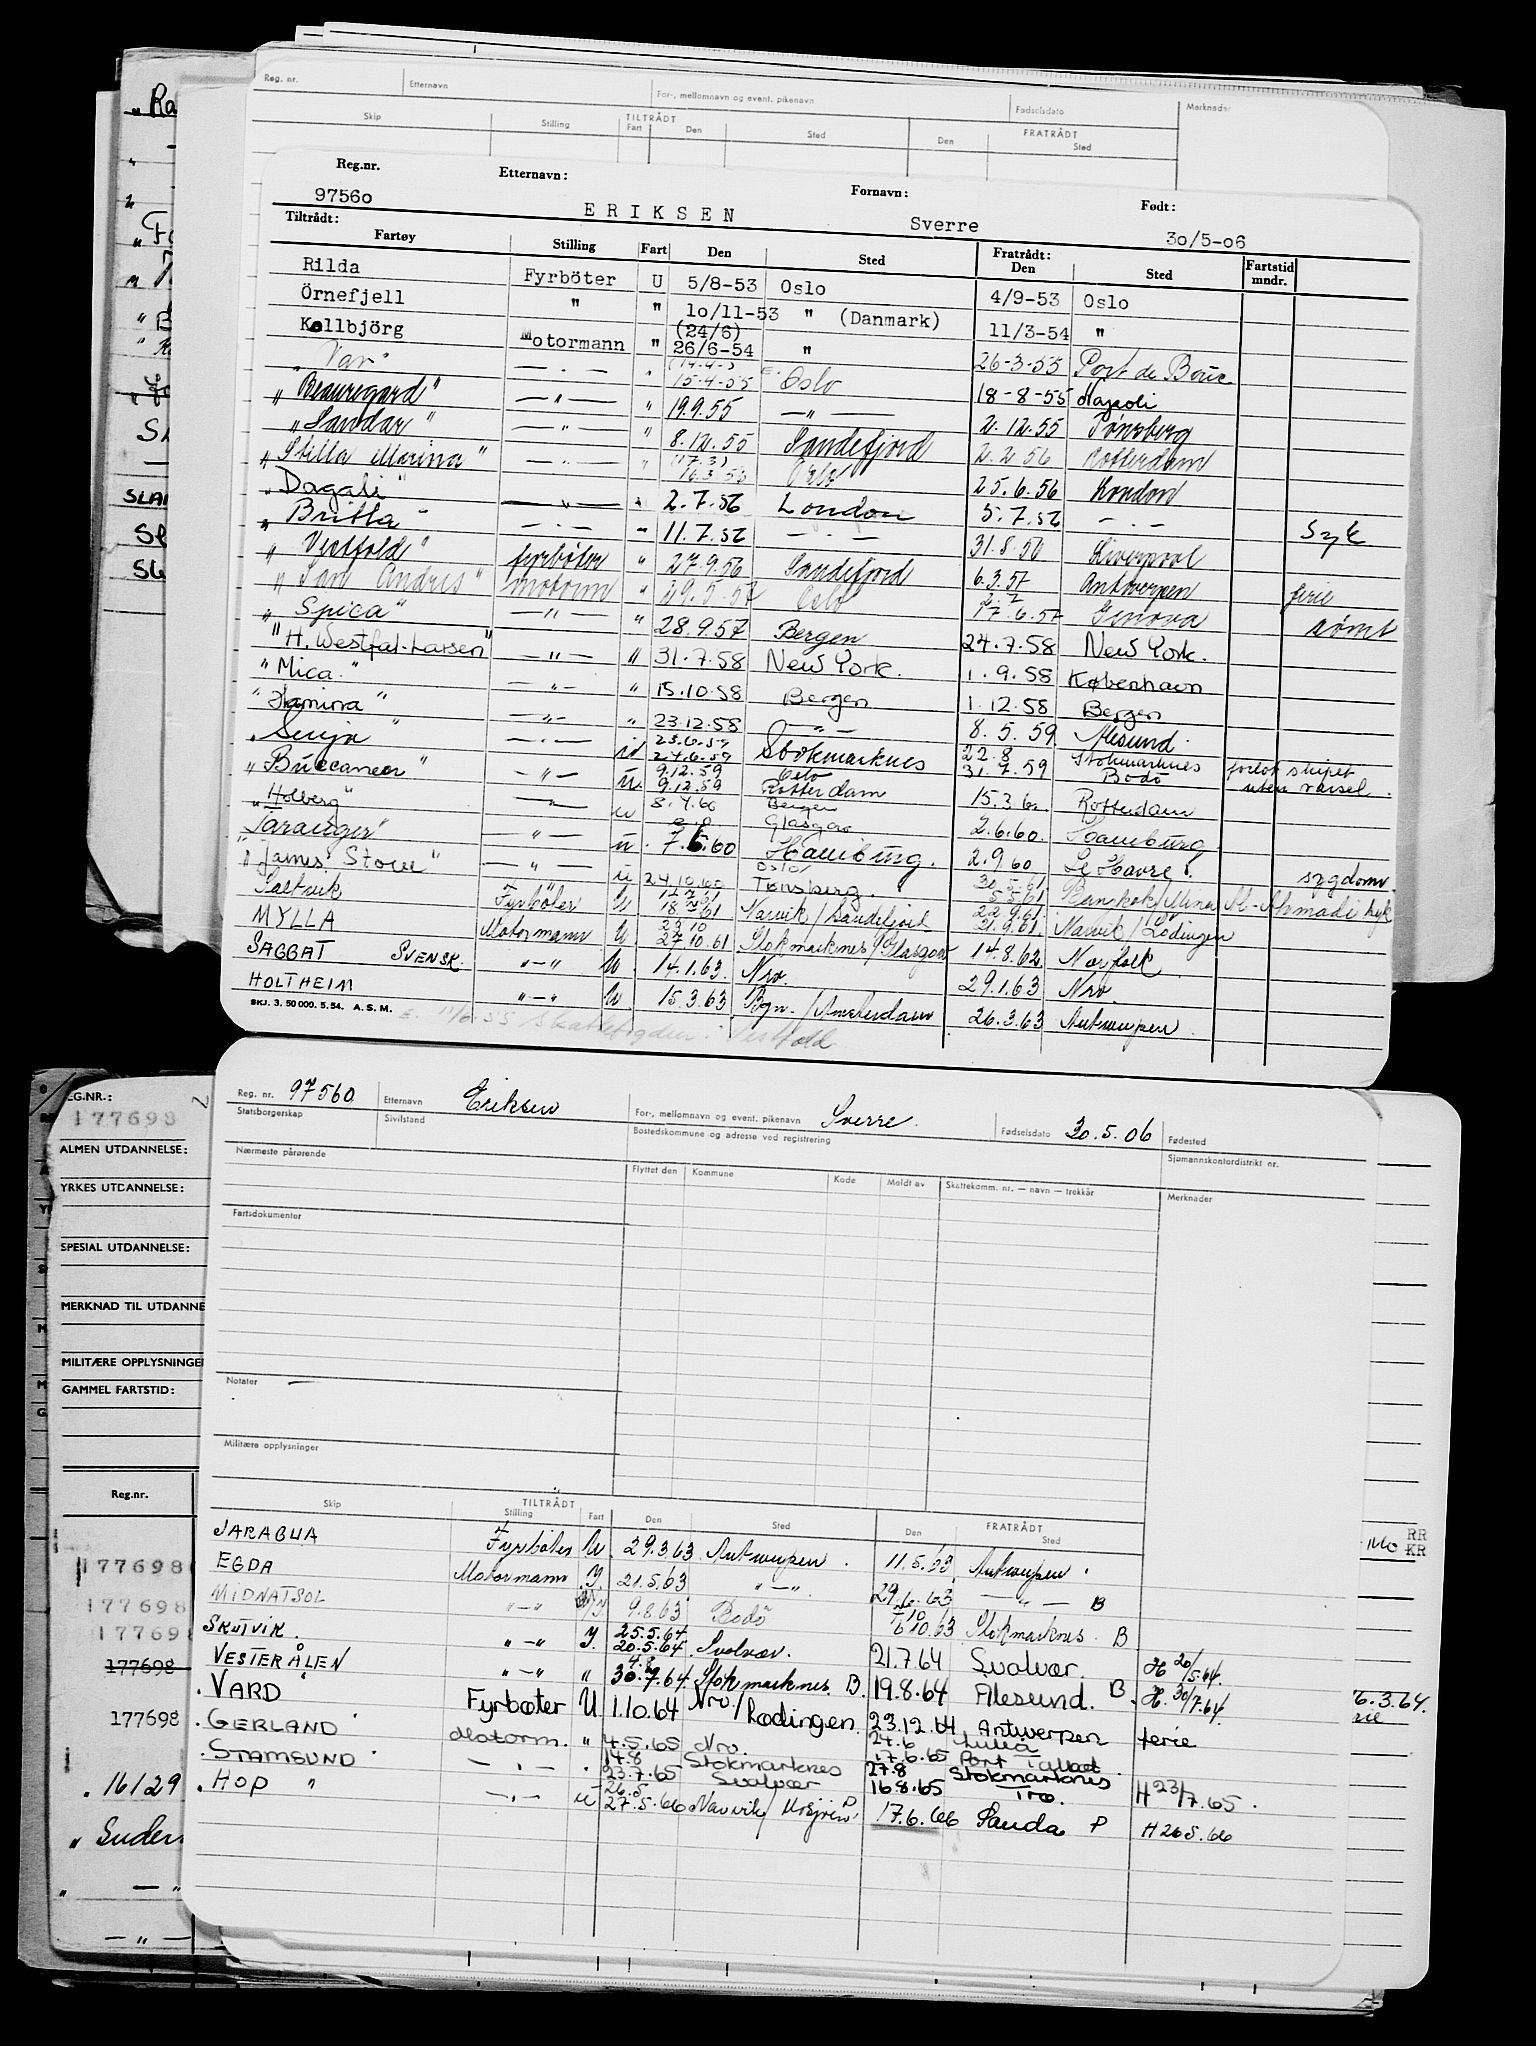 Reg. nr. Etternavn For-, mellomnavn og event. pikenavn Fødselsdato Merknader
Skip Stilling TILTRÅDT Fart Den Sted Den FRATRÅDT Sted
Reg.nr. Etternavn: Fornavn: Født:
97560 ERIKSEN Sverre 30/5-06
Tiltrådt: Fartøy Stilling Fart Den Sted Fratrådt: Den Sted Fartstid mndr.
Rilda Fyrböter U 5/8-53 Oslo 4/9-53 Oslo
Örnefjell " " 10/11-53 " (Danmark) 11/3-54 "
Kollbjörg Motormann " (24/6) 26/6-54 " 26-3-55 Port de Bouc
"Var" — " — " 15-4-55 Oslo 18-8-55 Napoli
"Beauregard" — " — " 19.9.55 — " — 2.12.55 Tönsberg
"Sandar" — " — " 8.12.55 Sandefjord 2.2.56 Rotterdam
"Stella Marina" — " — " (17.3) 16.3.56 Oslo 25.6.56 London
"Dagali" — " — " 2.7.56 London 5.7.56 — " —
"Britta" — " — " 11.7.56 — " — 31.8.56 Liverpool syk
"Vestfold" fyrböter " 27.9.56 Sandefjord 6.3.57 Antwerpen ferie
"San Andres" motorm " 29.5.57 Oslo 17.6.57 Genova rømt
"Spica" — " — " 28.9.57 Bergen 24.7.58 New York.
"H. Westfal-Larsen" — " — " 31.7.58 New York. 1.9.58 København
"Mica" — " — " 15.10.58 Bergen 1.12.58 Bergen
"Lamina" — " — " 23.12.58 — " — 8.5.59 Ålesund.
"Senja" — " — 23.6.59 24.6.59 Stokmarknes 22.8 31.7.59 Stokmarknes Bodö forlot skipet uten varsel.
"Buccaneer" — " — u. 9.12.59 9.12.59 Oslo Rotterdam 15.3.60 Rotterdam
"Holberg" — " — u 8.4.60 Bergen Glasgow 2.6.60. Hamburg
"Taranger" — " — u. 7.6.60 Hamburg. 2.9.60 Le Havre. sygdom
"James Stove" — " — u 24.10.60 Oslo/ Tønsberg. 30.5.61 5.5.61 Bangkok/Mina Al-Ahmadi syk
Saltvik Fyrböter U 18.7.61 Narvik/Sandefjord 22.9.61. 21.9.61. Narvik/Lödingen
MYLLA Motormann U. 23.10 27.10.61 Stokmarknes/Glasgow 14.8.62 Norfolk
SAGGAT SVENSK. " — " U. 14.1.63. Nrv. 29.1.63 Nrv.
HOLTHEIM " — " U. 15.3.63 Bgn./Amsterdam 26.3.63 Antwerpen.
SKJ. 3. 50 000. 5.54. A. S. M. E. 11/6-55 Skattefogden i Vestfold
Reg. nr. 97560 Etternavn Eriksen For-, mellomnavn og event. pikenavn Sverre. Fødselsdato 30.5.06 Fødested
Statsborgerskap Sivilstand Bostedskommune og adresse ved registrering Sjømannskontordistrikt nr.
Nærmeste pårørende Flyttet den Kommune Kode Meldt av Skattekomm. nr. — navn — trekkår Merknader
Fartsdokumenter
Notater
Militære opplysninger
Skip TILTRÅDT Stilling Fart Den Sted Den FRATRÅDT Sted
JARAGUA Fyrböter U. 29.3.63 Antwerpen. 11.5.63 Antwerpen.
EGDA Motormann Y. 21.5.63 " — " 29.6.63 — " — B
MIDNATSOL " — " 9.8.63 Bodö 7.10 6.10.63 Stokmarknes. B
SKUTVIK. " — " Y. 25.5.64 20.5.64 Svolvær. 21.7.64 Svolvær. H 20/5.64.
VESTERÅLEN " — " " 4.8 30.7.64. Stokmarknes. B. 19.8.64 Ålesund. B. H. 30/7.64.
VARD Fyrbøter U 1.10.64 Nrv/Lødingen. 23.12.64 Antwerpen ferie
GERLAND Motorm. " 4.5.65 Nrv. 24.6 17.6.65 Luleå Port Talbot.
STAMSUND — " — " 14.8 23.7.65 Stokmarknes Svolvær 27.8 16.8.65 Stokmarknes Tro. H 23/7.65.
HOP — " — U 26.5 27.5.66 Narvik/Mosjøen P 17.6.66 Sauda P H 26.5.66
REG.NR.:
177698
ALMEN UTDANNELSE:
YRKES UTDANNELSE:
SPESIAL UTDANNELSE:
MERKNAD TIL UTDANNE
MILITÆRE OPPLYSNINGER
GAMMEL FARTSTID:
Reg.nr.
177698
177698
177698
177698
177698
16129
"Suder
— " —
RR
KR
6.3.64.